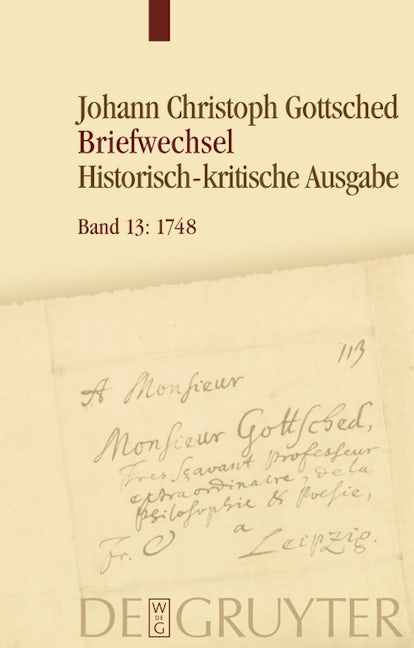 Johann Christoph Gottsched
Briefwechsel
Historisch-kritische Ausgabe
Band 13: 1748
113
A Monsieur
Monsieur Gottsched,
Tres sçavant professeur
extraordinaire, de la
Philosophie & Poesie,
Fr. a
Leipzig.
DE GRUYTER
W
DE
G